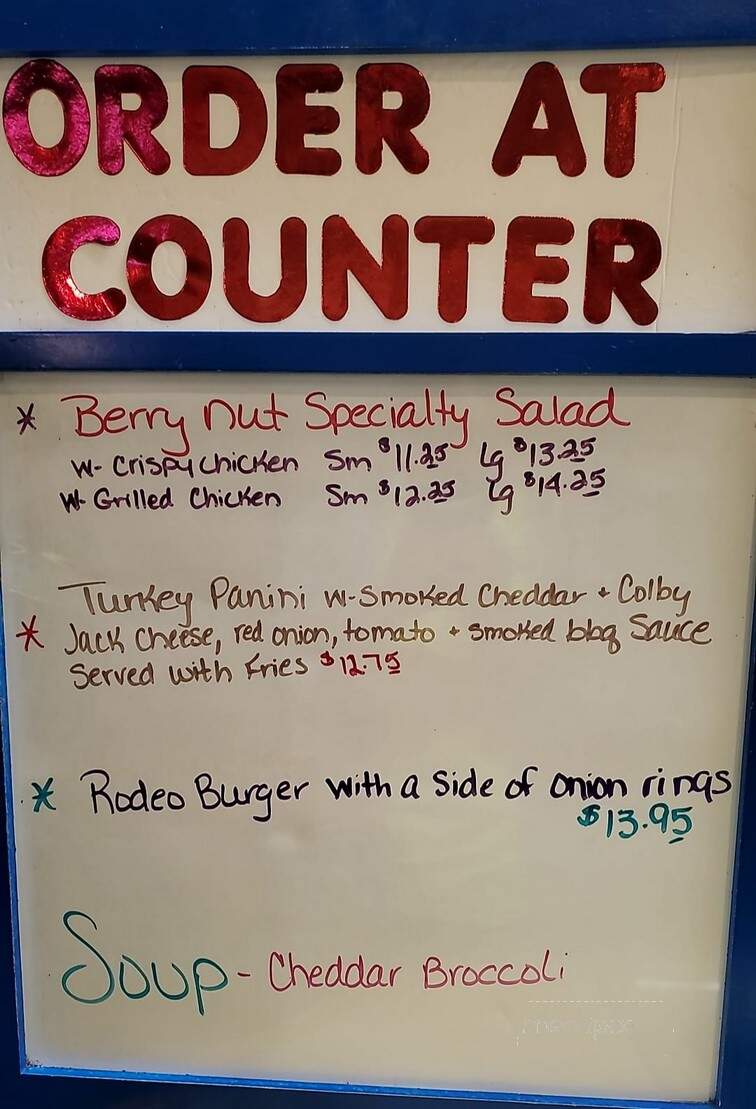 ORDER AT
COUNTER
* Berry nut Specialty Salad
w- Crispy Chicken Sm $11.25 Lg $13.25
w- Grilled Chicken Sm $12.25 Lg $14.25
Turkey Panini w-Smoked Cheddar + Colby
* Jack Cheese, red onion, tomato + smoked bbq Sauce
Served with Fries $12.75
* Rodeo Burger with a Side of onion rings
$13.95
Soup - Cheddar Broccoli